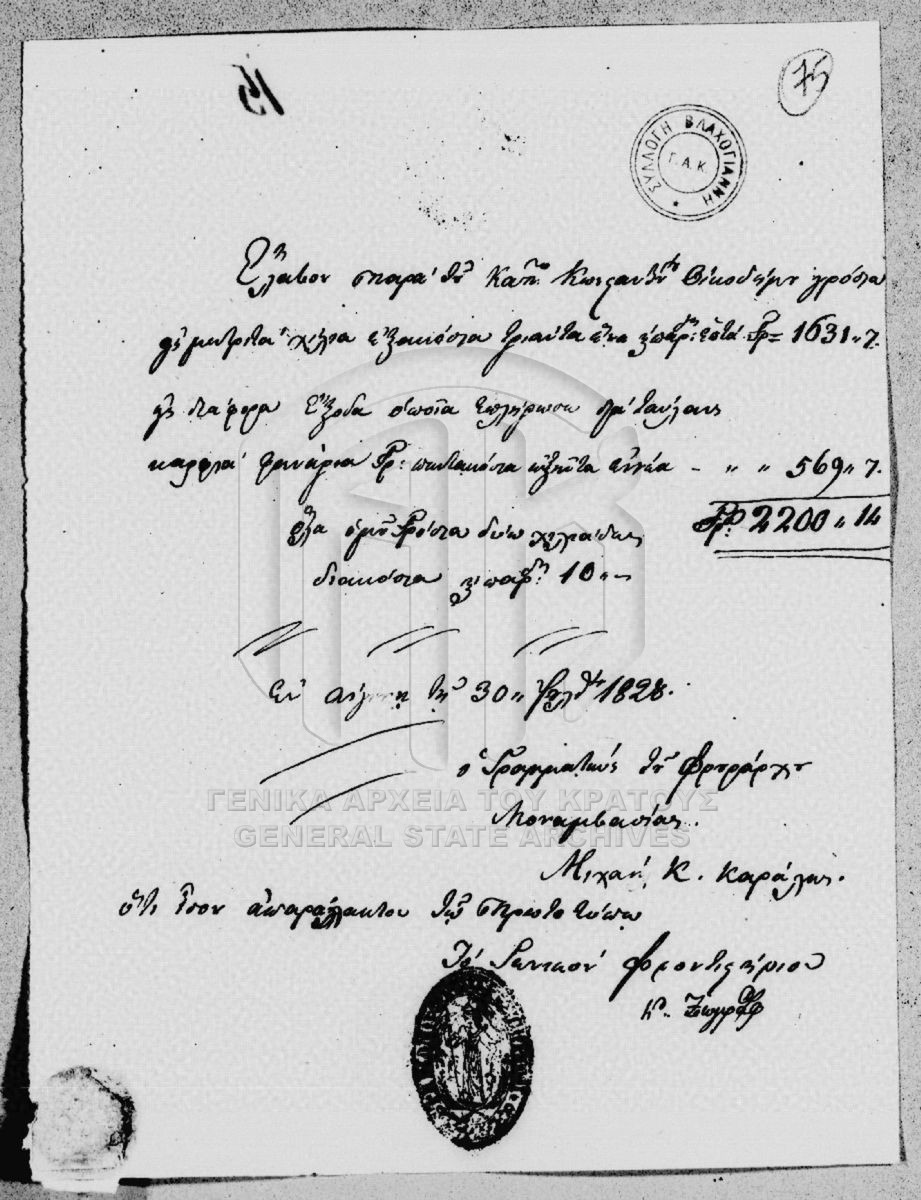 75
15
ΣΥΛΛΟΓΗ ΒΛΑΧΟΓΙΑΝΝΗ
Γ.Α.Κ.
Ἔλαβον παρὰ τοῦ Καπ: Κωνσταντ. Νικοδήμου γρόσια
μετρητὰ χίλια ἑξακόσια τριάντα ἕνα παρ: ἑπτά Γρ= 1631 〃 7.
διάφορα ἔξοδα ὁποῖα ἐπλήρωσα διὰ τάβλαις
καρφιὰ φανάρια Γρ: πεντακόσια ἑξῆντα ἐννέα - 〃 〃 569 〃 7.
Γρ: 2200 〃 14
ὁμοῦ Γρόσια δύω χιλιάδες
διακόσια παρ. 10 〃 -
Ἐν Αἰγίνῃ τῇ 30 〃 1828.
ὁ Γραμματεὺς τοῦ Φρουράρχου
Μονεμβασίας.
Μιχαὴλ Κ. Καράλης.
ὅτι ἴσον ἀπαράλλακτον τῷ πρωτοτύπῳ
Τὸ Γενικὸν Φροντιστήριον
Κ. Ζωγράφος
ΓΕΝΙΚΑ ΑΡΧΕΙΑ ΤΟΥ ΚΡΑΤΟΥΣ
GENERAL STATE ARCHIVES